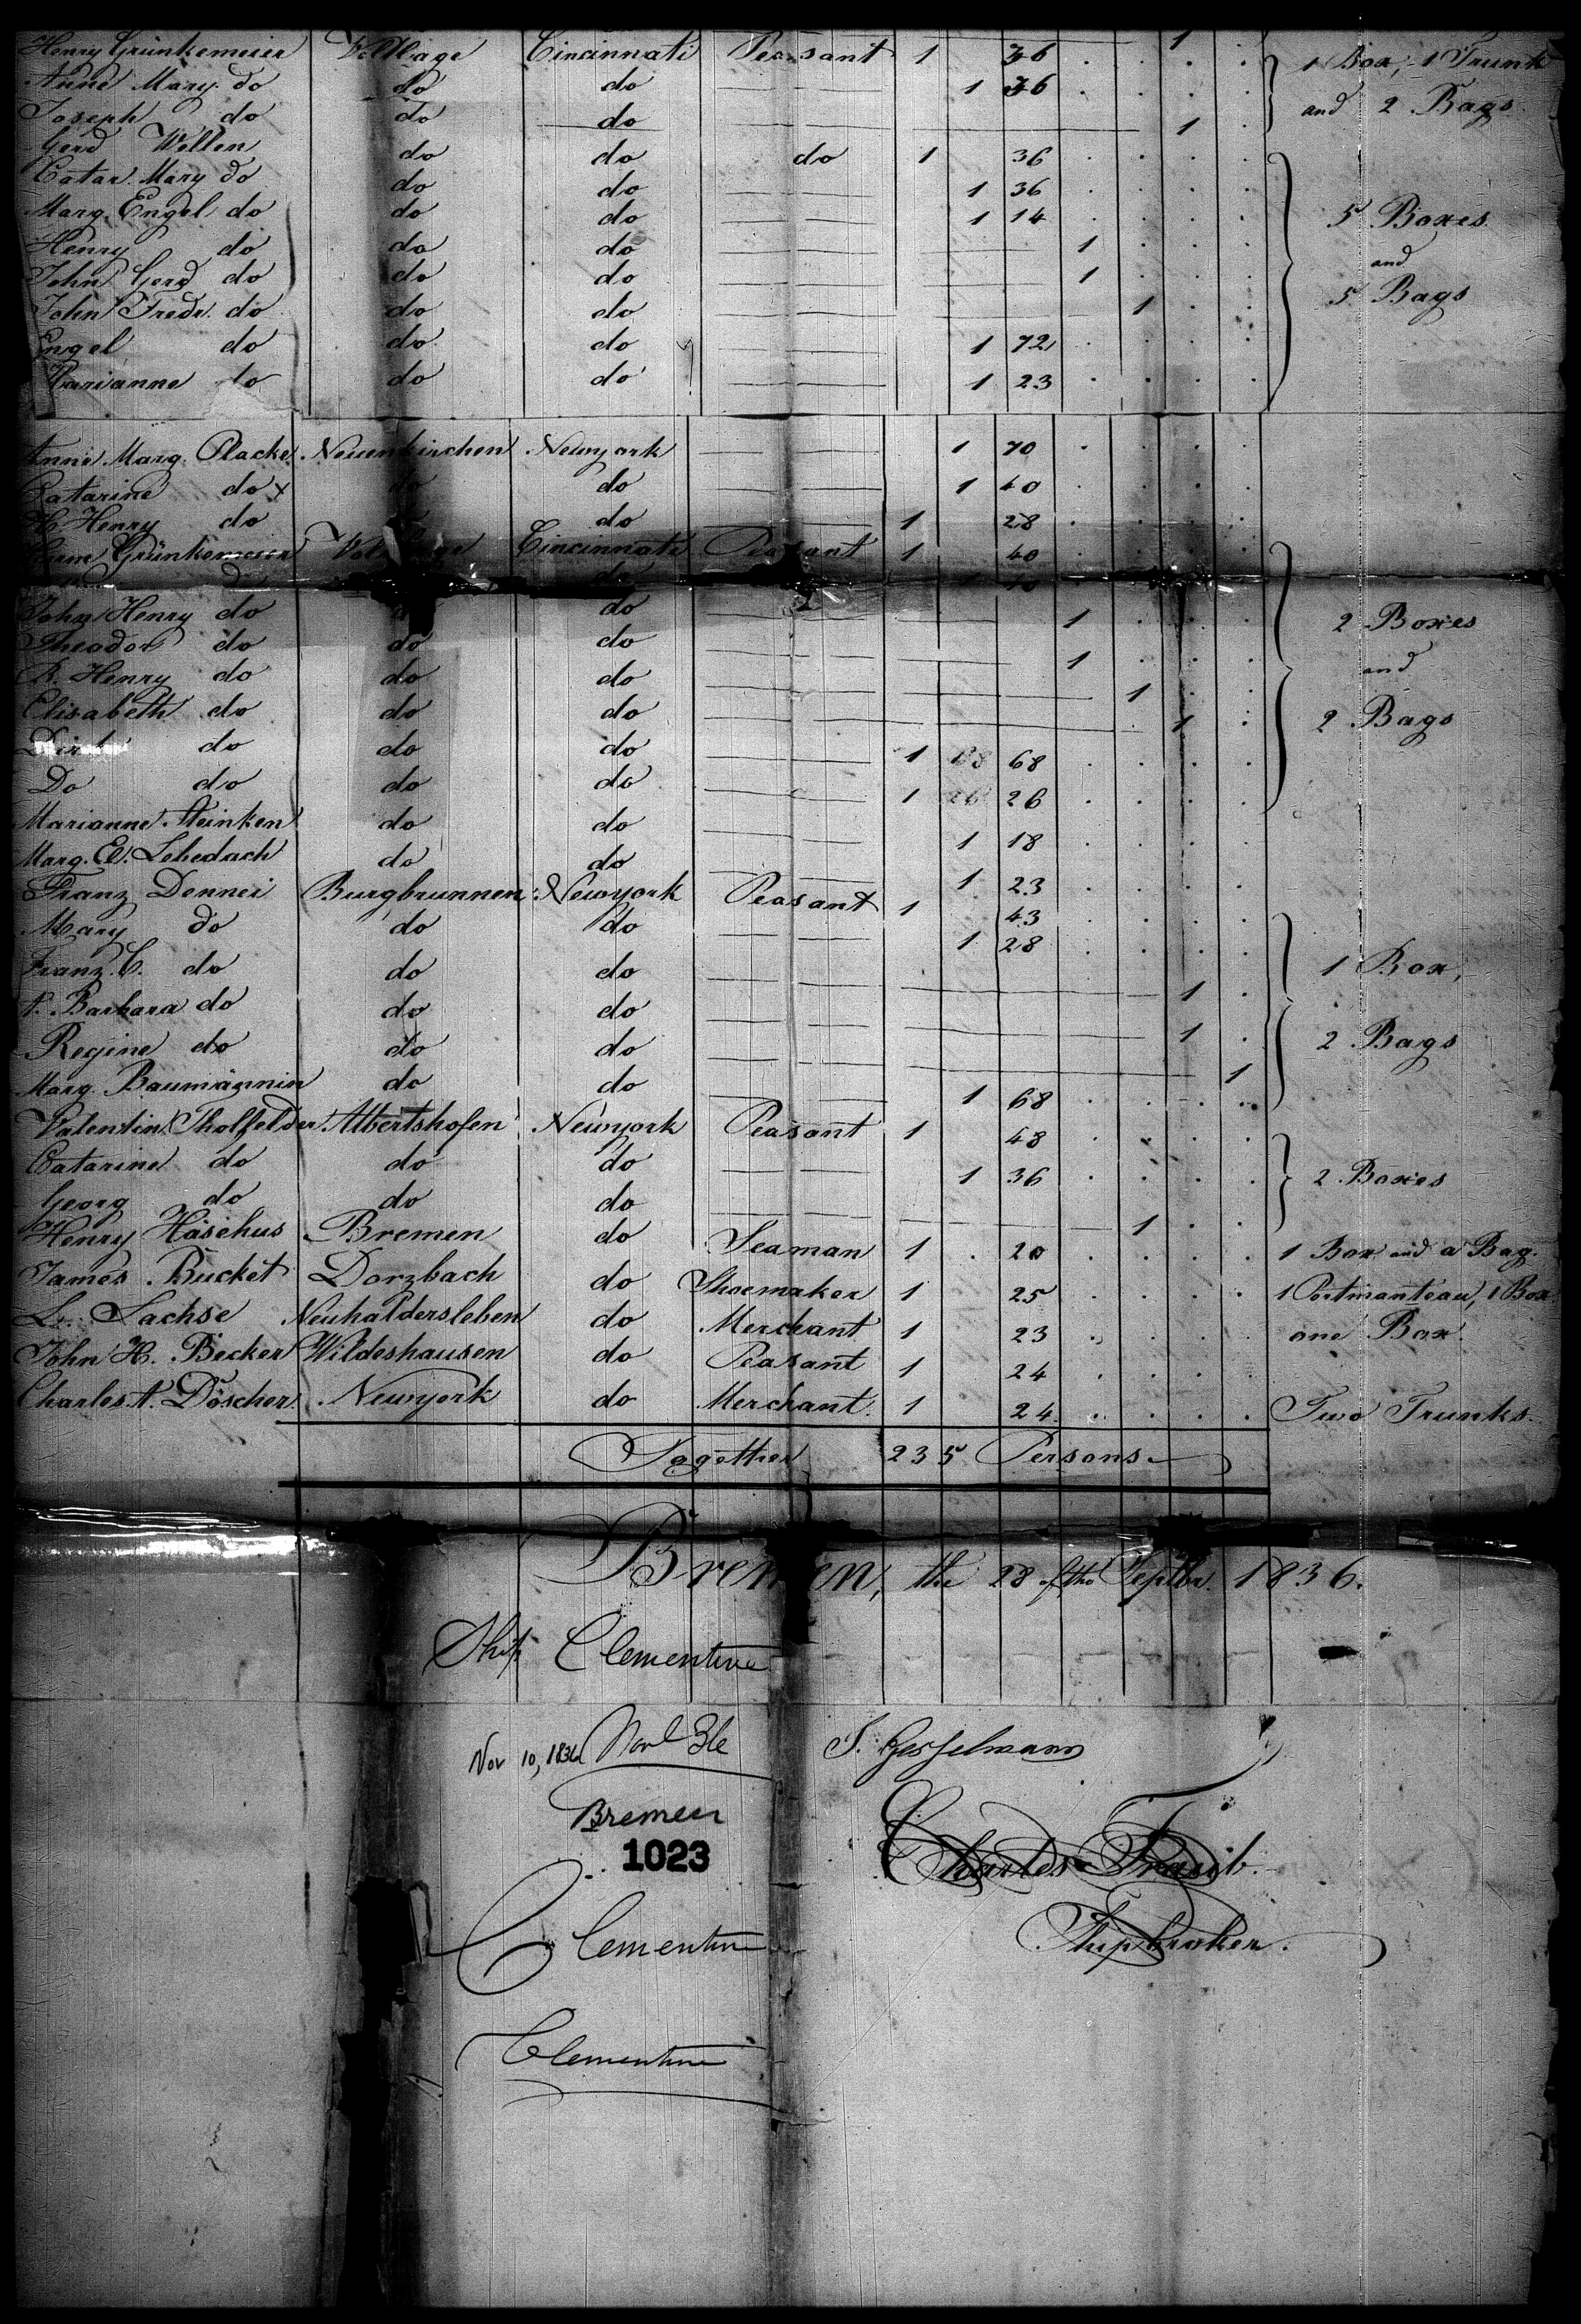 1
Henry Grünkemeier Voltlage Cincinnati Peasant 1 36 1 Box, 1 Trunk
Anne Mary do do do 1 36 and 2 Bags
Joseph do do do 1
Gerd Wellen do do do 1 36
Catar. Mary do do do 1 36
Marg. Engel do do do 1 14 5 Boxes
Henry do do do 1 and
John Gerd do do do 1 5 Bags
John Fredr. do do do 1
Engel do do do 1 72
Marianne do do do 1 23
Anne Marg. Placke Neuenkirchen Newyork 1 70
Catarine do x do do 1 40
H. Henry do do 1 28
Grünkemeier Voltlage Cincinnati Peasant 1 40
do do 1 40
John Henry do do do 1 2 Boxes
Theodor do do do 1 and
B. Henry do do do 1
Elisabeth do do do 1 2 Bags
Dirk do do do 1 68 68
Do do do do 1 26 26
Marianne Steinken do do 1 18
Marg. El. Lebedach do do 1 23
Franz Dennei Burgbrunnen Newyork Peasant 1 43
Mary do do do 1 28
Franz C. do do do 1 1 Box,
A. Barbara do do do 1
Regine do do do 1 2 Bags
Marg. Baumännin do do 1 68
Valentin Tholfelder Albertshofen Newyork Peasant 1 48
Catarine do do do 1 36 2 Boxes
Georg do do do 1
Henry Häsehus Bremen do Seaman 1 20 1 Box and a Bag.
James Bucket Dorzbach do Shoemaker 1 25 1 Portmanteau, 1 Box
L. Sachse Neuhaldersleben do Merchant 1 23 one Box.
John H. Becker Wildeshausen do Peasant 1 24
Charles A. Döscher Newyork do Merchant 1 24 Two Trunks.
Together 235 Persons
Bremen, the 28 of the Septbr. 1836.
Ship Clementine
Nov 10, 1836
Bremen
1023
Clementine
Clementine
Charles
Shipbroker.